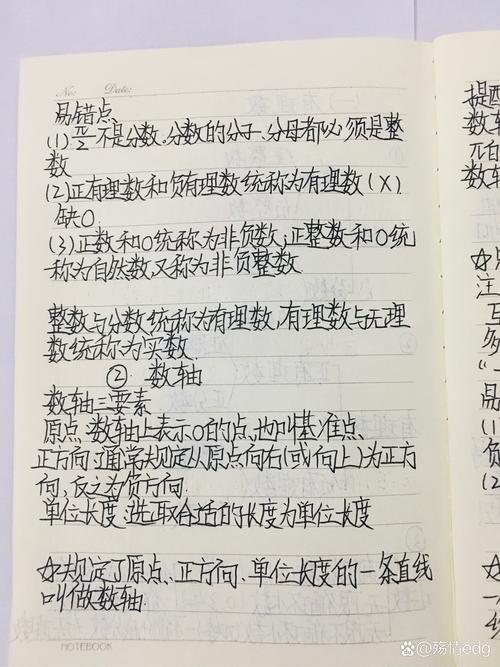 No:
Date:
易错点
(1) π/2 不是分数。分数的分子、分母都必须是整
数
(2)正有理数和负有理数统称为有理数(X)
缺0.
(3)正数和0统称为非负数,正整数和0统
称为自然数,又称为非负整数.
整数与分数统称为有理数,有理数与无理
数统称为实数.
② 数轴
数轴三要素
原点:数轴上表示0的点,也叫基准点.
正方向:通常规定从原点向右(或向上)为正方
向,反之为负方向.
单位长度:选取合适的长度为单位长度
☆规定了原点、正方向、单位长度的一条直线
叫做数轴.
NOTEBOOK
提醒
数轴
数轴
注
互
多
"一
易
(1)
负
(2
一
线
数
Baidu 百科
@殇情edg